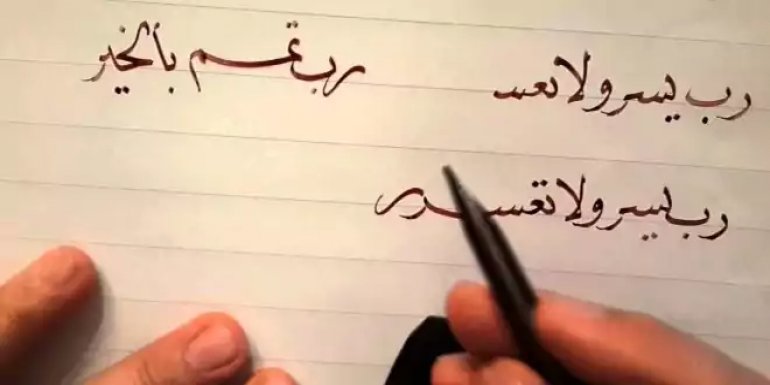 رب يسر ولا تعسـ
رب تمم بألخير
رب يسر ولا تعسر